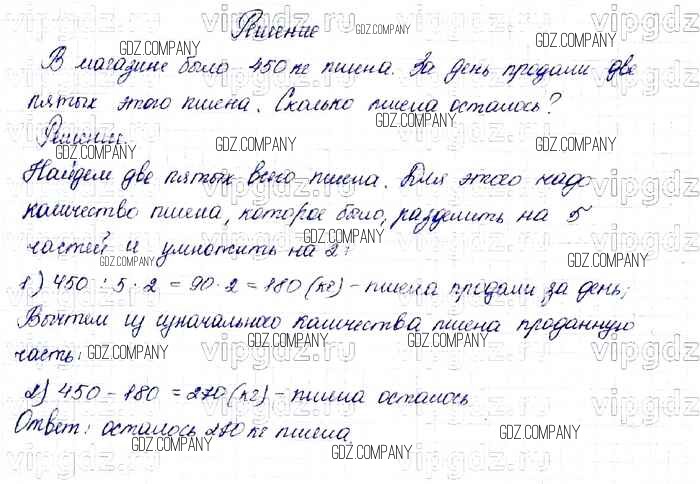 Решение
В магазине было 450 кг пшена. За день продали две
пятых этого пшена. Сколько пшена осталось?
Решение.
Найдем две пятых всего пшена. Для этого надо
количество пшена, которое было, разделить на 5
частей и умножить на 2:
1) 450 : 5 · 2 = 90 · 2 = 180 (кг) – пшена продали за день;
Вычтем из изначального количества пшена проданную
часть:
2) 450 – 180 = 270 (кг) – пшена осталось
Ответ: осталось 270 кг пшена
GDZ.COMPANY
vipgdz
vipgdz.ru